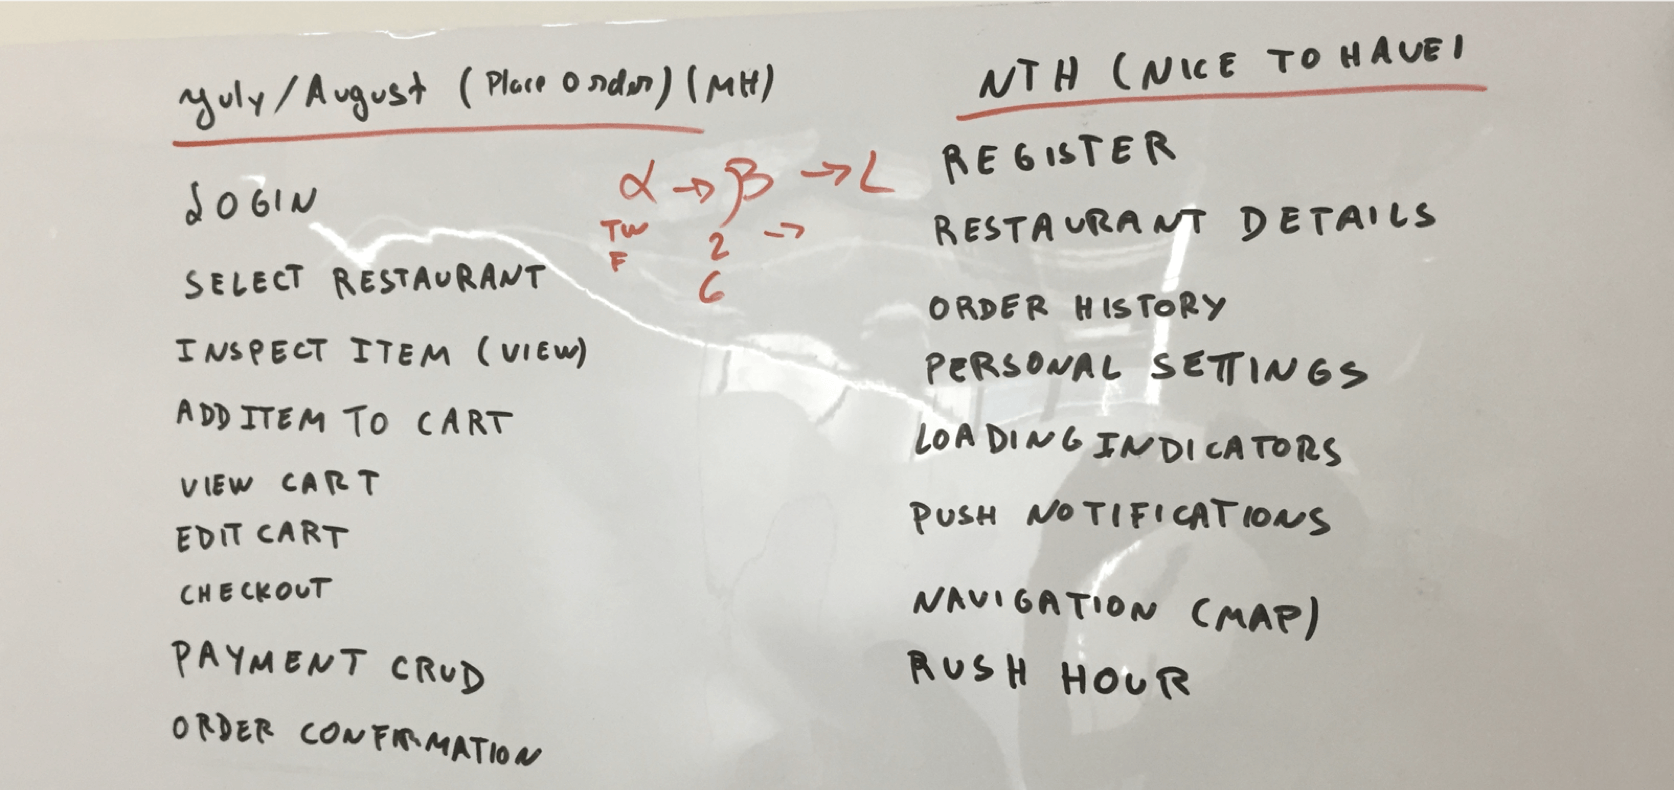 July/August (Place Order) (MH)
LOGIN
SELECT RESTAURANT
INSPECT ITEM (VIEW)
ADD ITEM TO CART
VIEW CART
EDIT CART
CHECKOUT
PAYMENT CRUD
ORDER CONFIRMATION
α → β → L
TW 2 →
F 6
NTH (NICE TO HAVE)
REGISTER
RESTAURANT DETAILS
ORDER HISTORY
PERSONAL SETTINGS
LOADING INDICATORS
PUSH NOTIFICATIONS
NAVIGATION (MAP)
RUSH HOUR